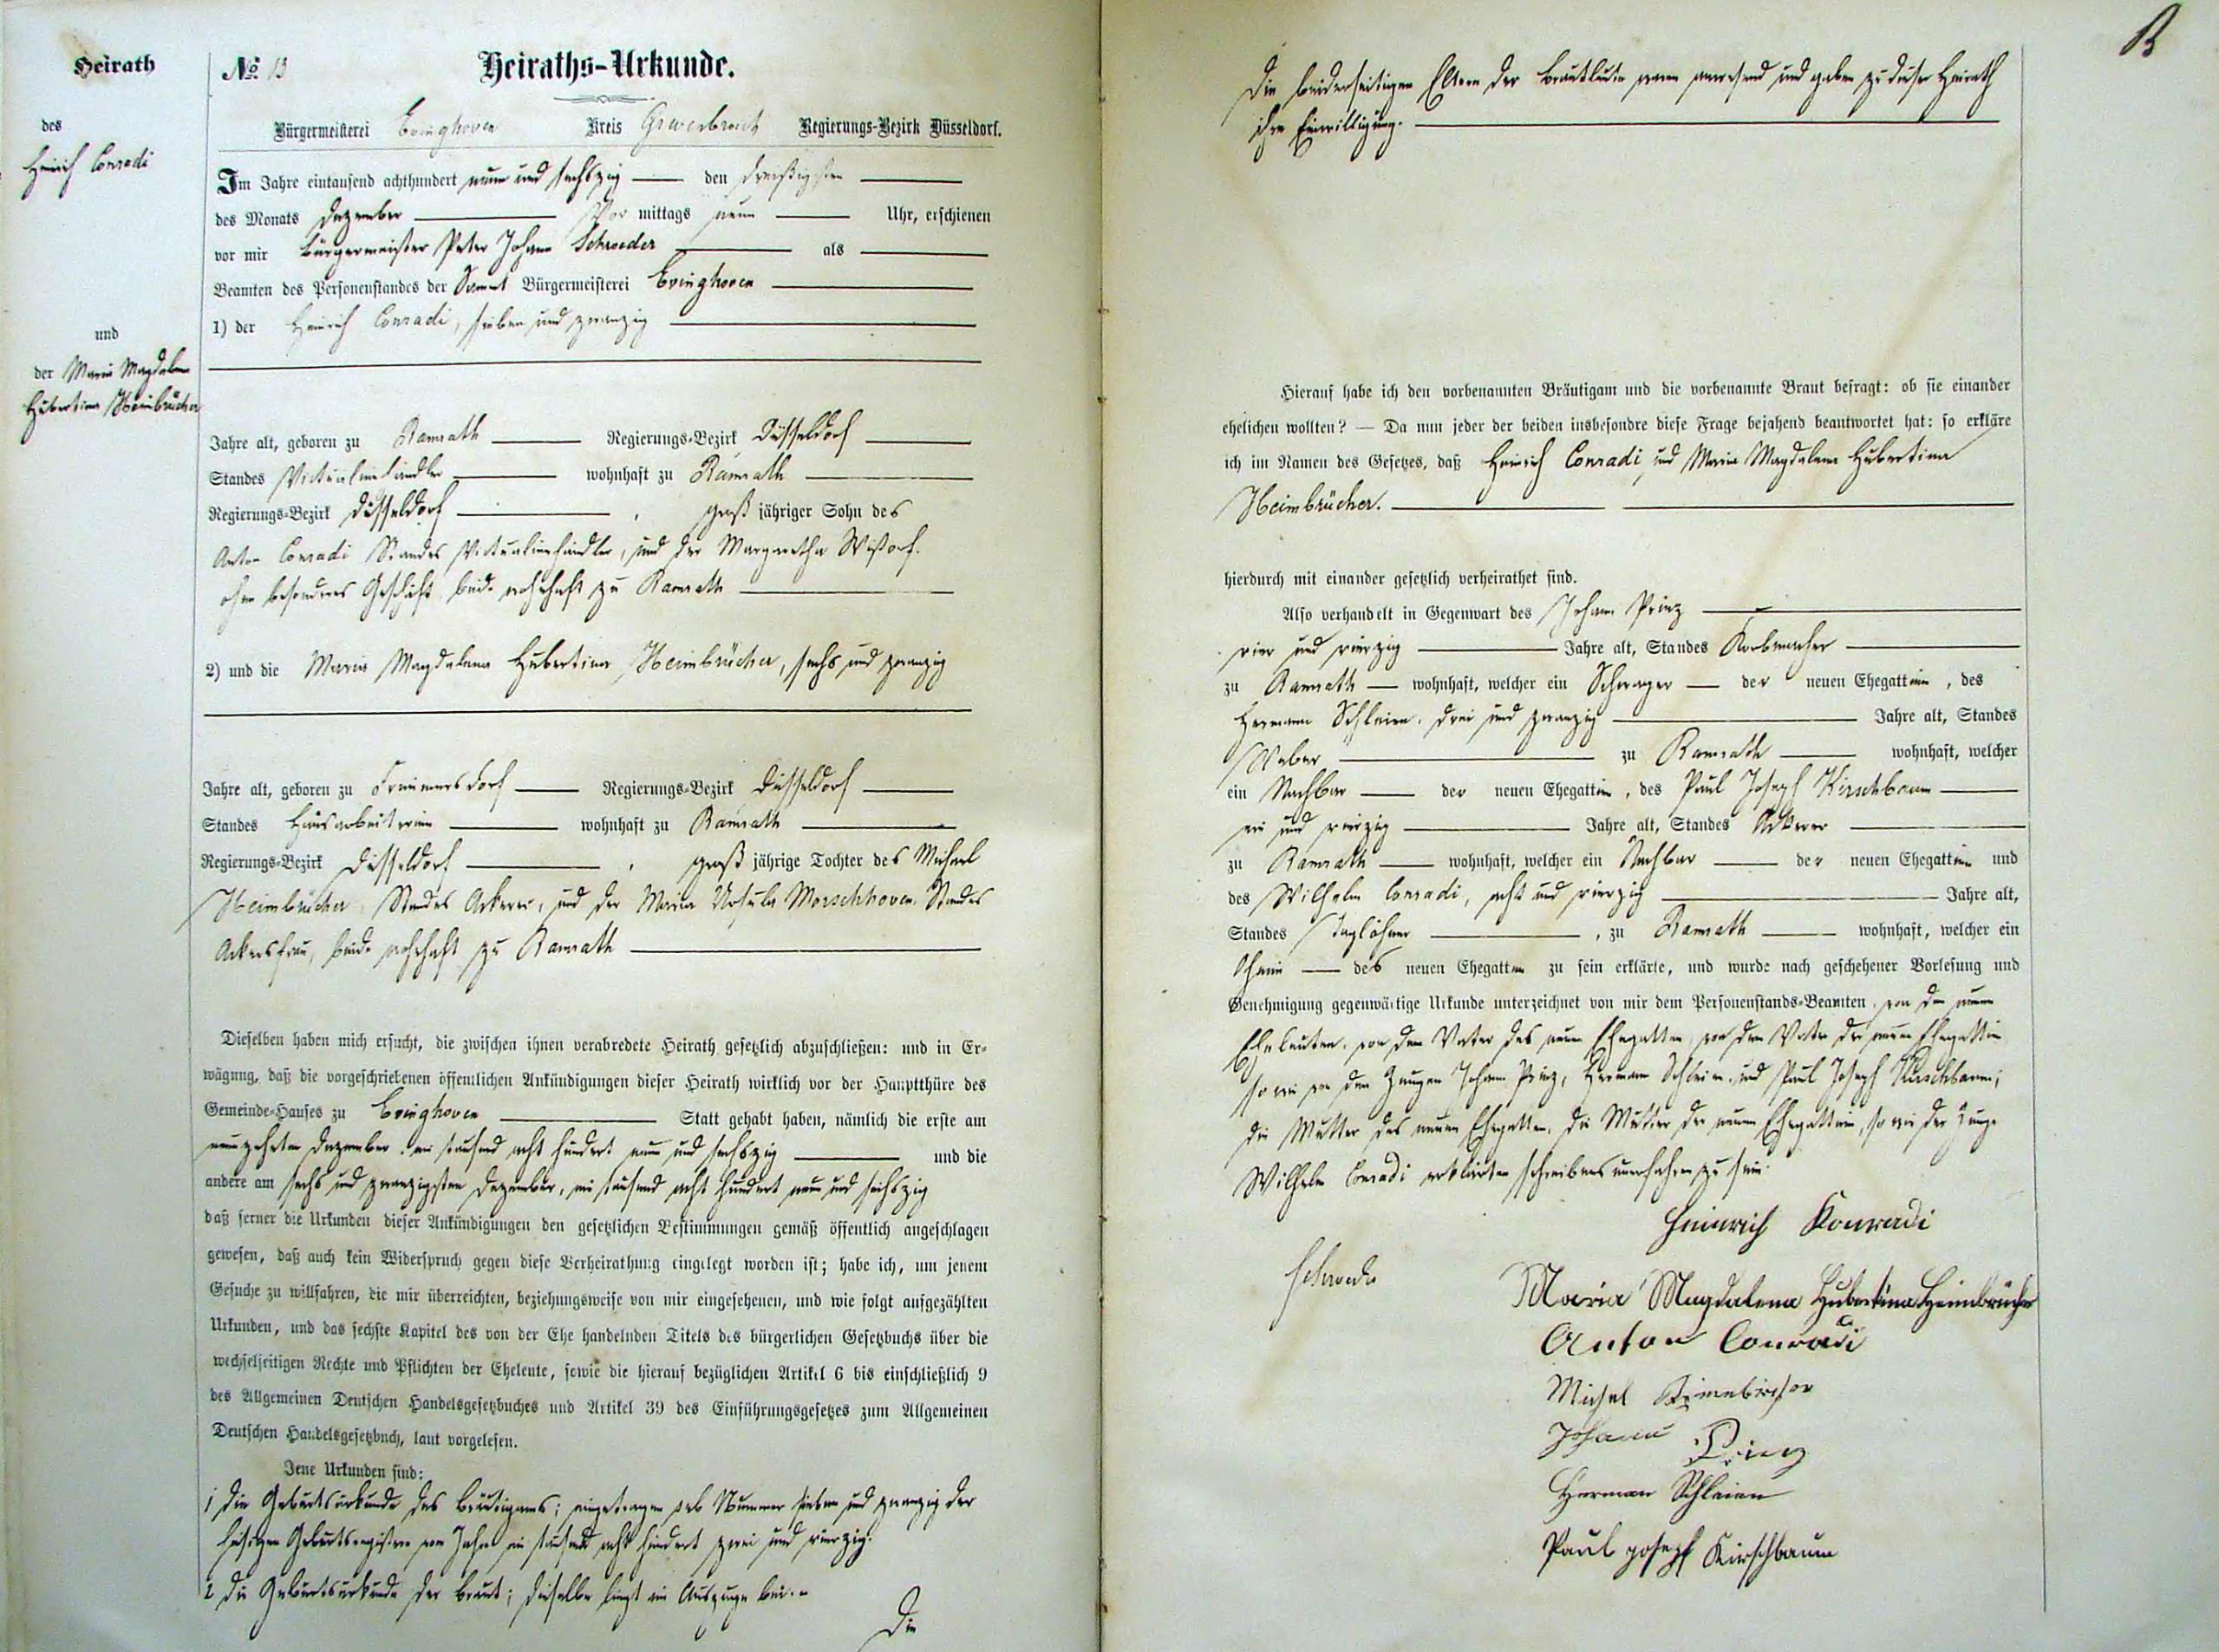 Heirath
des
Heinrich Conradi
und
der Maria Magdalena
Hubertina Heimbücher
No 13
Heiraths-Urkunde.
Bürgermeisterei Evinghoven Kreis Grevenbroich Regierungs-Bezirk Düsseldorf.
Im Jahre eintausend achthundert neun und sechszig den dreißigsten
des Monats Dezember Vor mittags neun Uhr, erschienen
vor mir Bürgermeister Peter Johann Schroeder als
Beamten des Personenstandes der Sammt Bürgermeisterei Evinghoven
1) der Heinrich Conradi, sieben und zwanzig
Jahre alt, geboren zu Ramrath Regierungs-Bezirk Düsseldorf
Standes Victualienhändler wohnhaft zu Ramrath
Regierungs-Bezirk Düsseldorf, groß jähriger Sohn des
Anton Conradi Standes Victualienhändler, und der Margaretha
ohne besonderes Geschäft beide wohnhaft zu Ramrath
2) und die Maria Magdalena Hubertina Heimbücher, sechs und zwanzig
Jahre alt, geboren zu Frimmersdorf Regierungs-Bezirk Düsseldorf
Standes Hausarbeiterin wohnhaft zu Ramrath
Regierungs-Bezirk Düsseldorf, groß jährige Tochter des Michael
Heimbücher Standes Ackerer, und der Maria Ursula Morschhoven, Standes
Ackersfrau, beide wohnhaft zu Ramrath
Dieselben haben mich ersucht, die zwischen ihnen verabredete Heirath gesetzlich abzuschließen: und in Er-
wägung, daß die vorgeschriebenen öffentlichen Ankündigungen dieser Heirath wirklich vor der Hauptthüre des
Gemeinde-Hauses zu Evinghoven Statt gehabt haben, nämlich die erste am
neunzehnten Dezember ein tausend acht hundert neun und sechszig und die
andere am sechs und zwanzigsten Dezember, ein tausend acht hundert neun und sechszig
daß ferner die Urkunden dieser Ankündigungen den gesetzlichen Bestimmungen gemäß öffentlich angeschlagen
gewesen, daß auch kein Widerspruch gegen diese Verheirathung eingelegt worden ist; habe ich, um jenem
Gesuche zu willfahren, die mir überreichten, beziehungsweise von mir eingesehenen, und wie folgt aufgezählten
Urkunden, und das sechste Kapitel des von der Ehe handelnden Titels des bürgerlichen Gesetzbuchs über die
wechselseitigen Rechte und Pflichten der Eheleute, sowie die hierauf bezüglichen Artikel 6 bis einschließlich 9
des Allgemeinen Deutschen Handelsgesetzbuches und Artikel 39 des Einführungsgesetzes zum Allgemeinen
Deutschen Handelsgesetzbuch, laut vorgelesen.
Jene Urkunden sind:
1 Die Geburtsurkunde des Bräutigams; eingetragen sub Nummer sieben und zwanzig der
hiesigen Geburtsregister vom Jahre ein tausend acht hundert zwei und vierzig.
2 Die Geburtsurkunde der Braut; dieselbe liegt im Auszuge bei.
Die
Die beiderseitigen Eltern der Brautleute waren anwesend und gaben zu dieser Heirath
ihre Einwilligung.
Hierauf habe ich den vorbenannten Bräutigam und die vorbenannte Braut befragt: ob sie einander
ehelichen wollten? — Da nun jeder der beiden insbesondre diese Frage bejahend beantwortet hat: so erkläre
ich im Namen des Gesetzes, daß Heinrich Conradi und Maria Magdalena Hubertina
Heimbrücher.
hierdurch mit einander gesetzlich verheirathet sind.
Also verhandelt in Gegenwart des Johann Prinz
vier und vierzig Jahre alt, Standes Korbmacher
zu Ramrath wohnhaft, welcher ein Schwager der neuen Ehegattin, des
Hermann Schleien, drei und zwanzig Jahre alt, Standes
Weber zu Ramrath wohnhaft, welcher
ein Nachbar der neuen Ehegattin, des Paul Joseph Kirschbaum
ein und vierzig Jahre alt, Standes Ackerer
zu Ramrath wohnhaft, welcher ein Nachbar der neuen Ehegattin und
des Wilhelm Conradi, acht und vierzig Jahre alt,
Standes Taglöhner, zu Ramrath wohnhaft, welcher ein
Oheim des neuen Ehegatten zu sein erklärte, und wurde nach geschehener Vorlesung und
Genehmigung gegenwärtige Urkunde unterzeichnet von mir dem Personenstands-Beamten, von den neuen
Eheleuten, von dem Vater des neuen Ehegatten, von dem Vater der neuen Ehegattin
so wie von den Zeugen Johann Prinz, Hermann Schleien und Paul Joseph Kirschbaum;
die Mutter des neuen Ehegatten, die Mutter der neuen Ehegattin, so wie der Zeuge
Wilhelm Conradi erklärten schreibensunerfahren zu sein.
Heinrich Konradi
Schroeder
Maria Magdalena Hubertina Heimbrücher
Anton Conradi
Michel
Johann Prinz
Herman Schleien
Paul Joseph Kirschbaum